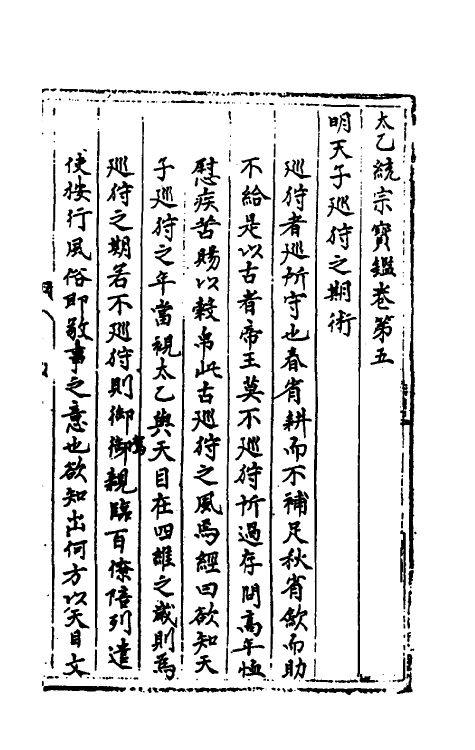 太乙統宗寳鑑卷第五
明天子廵狩之期術
廵狩者廵所守也春省耕而不補足秋省歛而助
不給是以古者帝王莫不廵狩所過存問高年恤
慰疾苦賜以榖帛此古廵狩之風焉經曰欲知天
子廵狩之年當視太乙與天目在四維之歲則爲
廵狩之期若不廵狩則御衙親臨百僚陪列遣
使按行風俗即敬事之意也欲知出何方以天目文